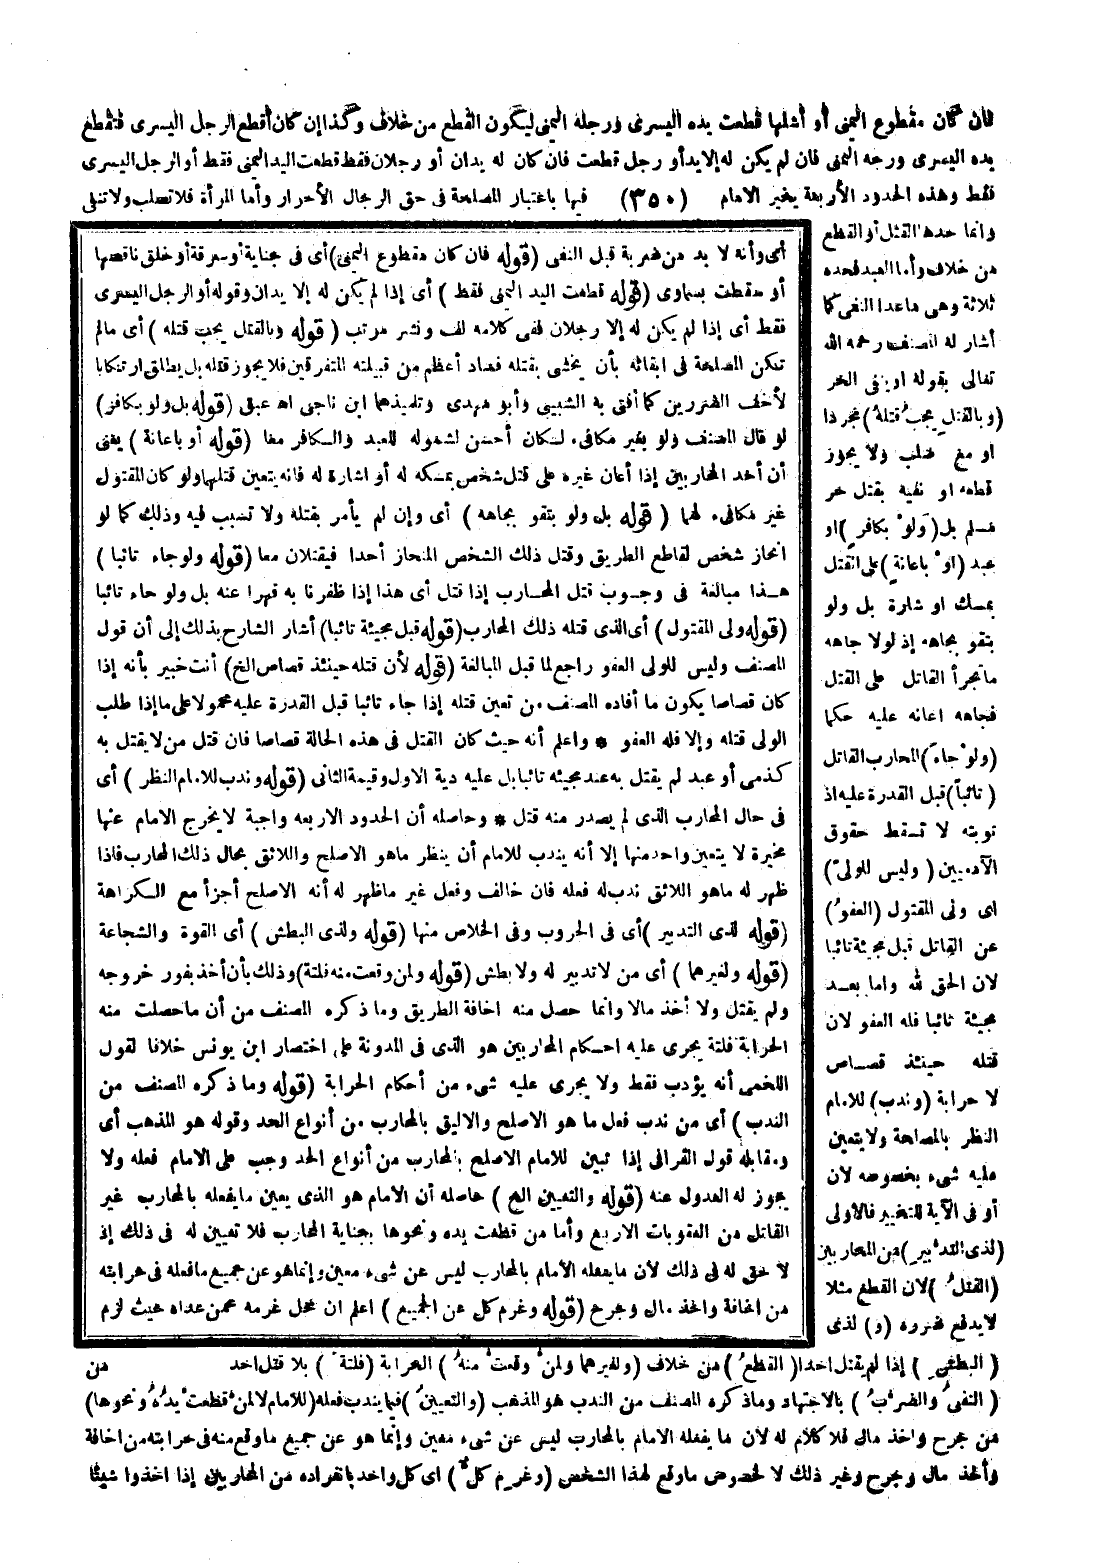 فان كان مقطوع اليمنى أو أشلها قطعت يده اليسرى ورجله اليمنى ليكون القطع من خلاف وكذا إن كان أقطع الرجل اليسرى فتقطع
يده اليسرى ورجله اليمنى فان لم يكن له إلا يد أو رجل قطعت فان كان له يدان أو رجلان فقط قطعت اليد اليمنى فقط أو الرجل اليسرى
فقط وهذه الحدود الأربعة يخير الامام (٣٥٠) فيها باعتبار المصلحة فى حق الرجال الأحرار وأما المرأة فلا تصلب ولا تنفى
وانما حدها القتل أو القطع
من خلاف وأما العبد فحده
ثلاثة وهى ماعدا النفى كما
أشار له المصنف رحمه الله
تعالى بقوله او ينفى الحر
(وبالقتل يجب قتله) مجردا
او مع صلب ولا يجوز
قطعه او نفيه بقتل حر
مسلم بل (ولو بكافر) او
عبد (او باعانة) على القتل
بمسك او شارة بل ولو
بتقو بجاهه إذ لولا جاهه
ما تجرأ القاتل على القتل
فجاهه اعانه عليه حكما
(ولو جاء) المحارب القاتل
(تائبا) قبل القدرة عليه اذ
توبته لا تسقط حقوق
الآدميين (وليس للولى)
اى ولى المقتول (العفو)
عن القاتل قبل مجيئة تائبا
لان الحق لله واما بعد
مجيئة تائبا فله العفو لان
قتله حينئذ قصاص
لا حرابة (وندب) للامام
النظر بالمصلحة ولا يتعين
عليه شىء بخصوصه لان
أو فى الآية للتخيير فالاولى
(لذى التدبير) من المحاربين
(القتل) لان القطع مثلا
لا يدفع ضرره (و) لذى
أى وأنه لا بد من ضربة قبل النفى (قوله فان كان مقطوع اليمنى) أى فى جناية أو سرقة أو خلق ناقصها
أو سقطت بسماوى (قوله قطعت اليد اليمنى فقط) أى إذا لم يكن له إلا يدان وقوله أو الرجل اليسرى
فقط أى إذا لم يكن له إلا رجلان ففى كلامه لف ونشر مرتب (قوله وبالقتل يجب قتله) أى مالم
تكن المصلحة فى ابقائه بأن يخشى بقتله فساد أعظم من قبيلته المتفرقين فلا يجوز قتله بل يطلق ارتكابا
لأخف الضررين كما أفتى به الشبيبى وأبو مهدى وتلميذهما ابن ناجى اه عبق (قوله بل ولو بكافر)
لو قال المصنف ولو بغير مكافىء لكان أحسن لشموله للعبد والكافر معا (قوله أو باعانة) يعنى
أن أحد المحاربين إذا أعان غيره على قتل شخص بمسكه له أو اشارة له فانه يتعين قتلهما ولو كان المقتول
غير مكافىء لهما (قوله بل ولو بتقو بجاهه) أى وإن لم يأمر بقتله ولا تسبب فيه وذلك كما لو
انحاز شخص لقاطع الطريق وقتل ذلك الشخص المنحاز أحدا فيقتلان معا (قوله ولو جاء تائبا)
هذا مبالغة فى وجوب قتل المحارب إذا قتل أى هذا إذا ظفرنا به قهرا عنه بل ولو جاء تائبا
(قوله ولى المقتول) أى الذى قتله ذلك المحارب (قوله قبل مجيئة تائبا) أشار الشارح بذلك إلى أن قول
المصنف وليس للولى العفو راجع لما قبل المبالغة (قوله لأن قتله حينئذ قصاص الخ) أنت خبير بأنه إذا
كان قصاصا يكون ما أفاده المصنف من تعين قتله إذا جاء تائبا قبل القدرة عليه محمولا على ما إذا طلب
الولى قتله وإلا فله العفو * واعلم أنه حيث كان القتل فى هذه الحالة قصاصا فان قتل من لا يقتل به
كذمى أو عبد لم يقتل به عند مجيئه تائبا بل عليه دية الاول وقيمة الثانى (قوله وندب للامام النظر) أى
فى حال المحارب الذى لم يصدر منه قتل * وحاصله أن الحدود الاربعه واجبة لا يخرج الامام عنها
مخيرة لا يتعين واحد منها إلا أنه يندب للامام أن ينظر ماهو الاصلح واللائق بحال ذلك المحارب فاذا
ظهر له ماهو اللائق ندب له فعله فان خالف وفعل غير ماظهر له أنه الاصلح أجزأ مع الكراهة
(قوله لذى التدبير) أى فى الحروب وفى الخلاص منها (قوله ولذى البطش) أى القوة والشجاعة
(قوله ولغيرهما) أى من لا تدبير له ولا بطش (قوله ولمن وقعت منه فلتة) وذلك بأن أخذ بفور خروجه
ولم يقتل ولا أخذ مالا وانما حصل منه اخافة الطريق وما ذكره المصنف من أن ماحصلت منه
الحرابة فلتة يجرى عليه احكام المحاربين هو الذى فى المدونة على اختصار ابن يونس خلافا لقول
اللخمى أنه يؤدب فقط ولا يجرى عليه شىء من أحكام الحرابة (قوله وما ذكره المصنف من
الندب) أى من ندب فعل ما هو الاصلح والاليق بالمحارب من أنواع الحد وقوله هو المذهب أى
ومقابله قول القرافى إذا تبين للامام الاصلح بالمحارب من أنواع الحد وجب على الامام فعله ولا
يجوز له العدول عنه (قوله والتعيين الخ) حاصله أن الامام هو الذى يعين مايفعله بالمحارب غير
القاتل من العقوبات الاربع وأما من قطعت يده ونحوها بجناية المحارب فلا تعيين له فى ذلك إذ
لا حق له فى ذلك لأن مايفعله الأمام بالمحارب ليس عن شىء معين وإنما هو عن جميع مافعله فى حرابته
من اخافة وأخذ مال وجرح (قوله وغرم كل عن الجميع) اعلم ان محل غرمه عمن عداه حيث لزم
(البطش) إذا لم يقتل احدا (القطع) من خلاف (ولغيرهما ولمن وقعت منه) الحرابة (فلتة) بلا قتل احد من
(النفى والضرب) بالاجتهاد وماذكره المصنف من الندب هو المذهب (والتعيين) فيما يندب فعله (للامام لا لمن قطعت يده ونحوها)
من جرح واخذ مال فلا كلام له لأن ما يفعله الامام بالمحارب ليس عن شىء معين وإنما هو عن جميع ماوقع منه فى حرابته من اخافة
وأخذ مال وجرح وغير ذلك لا لخصوص ماوقع لهذا الشخص (وغرم كل) اى كل واحد بانفراده من المحاربين إذا اخذوا شيئا